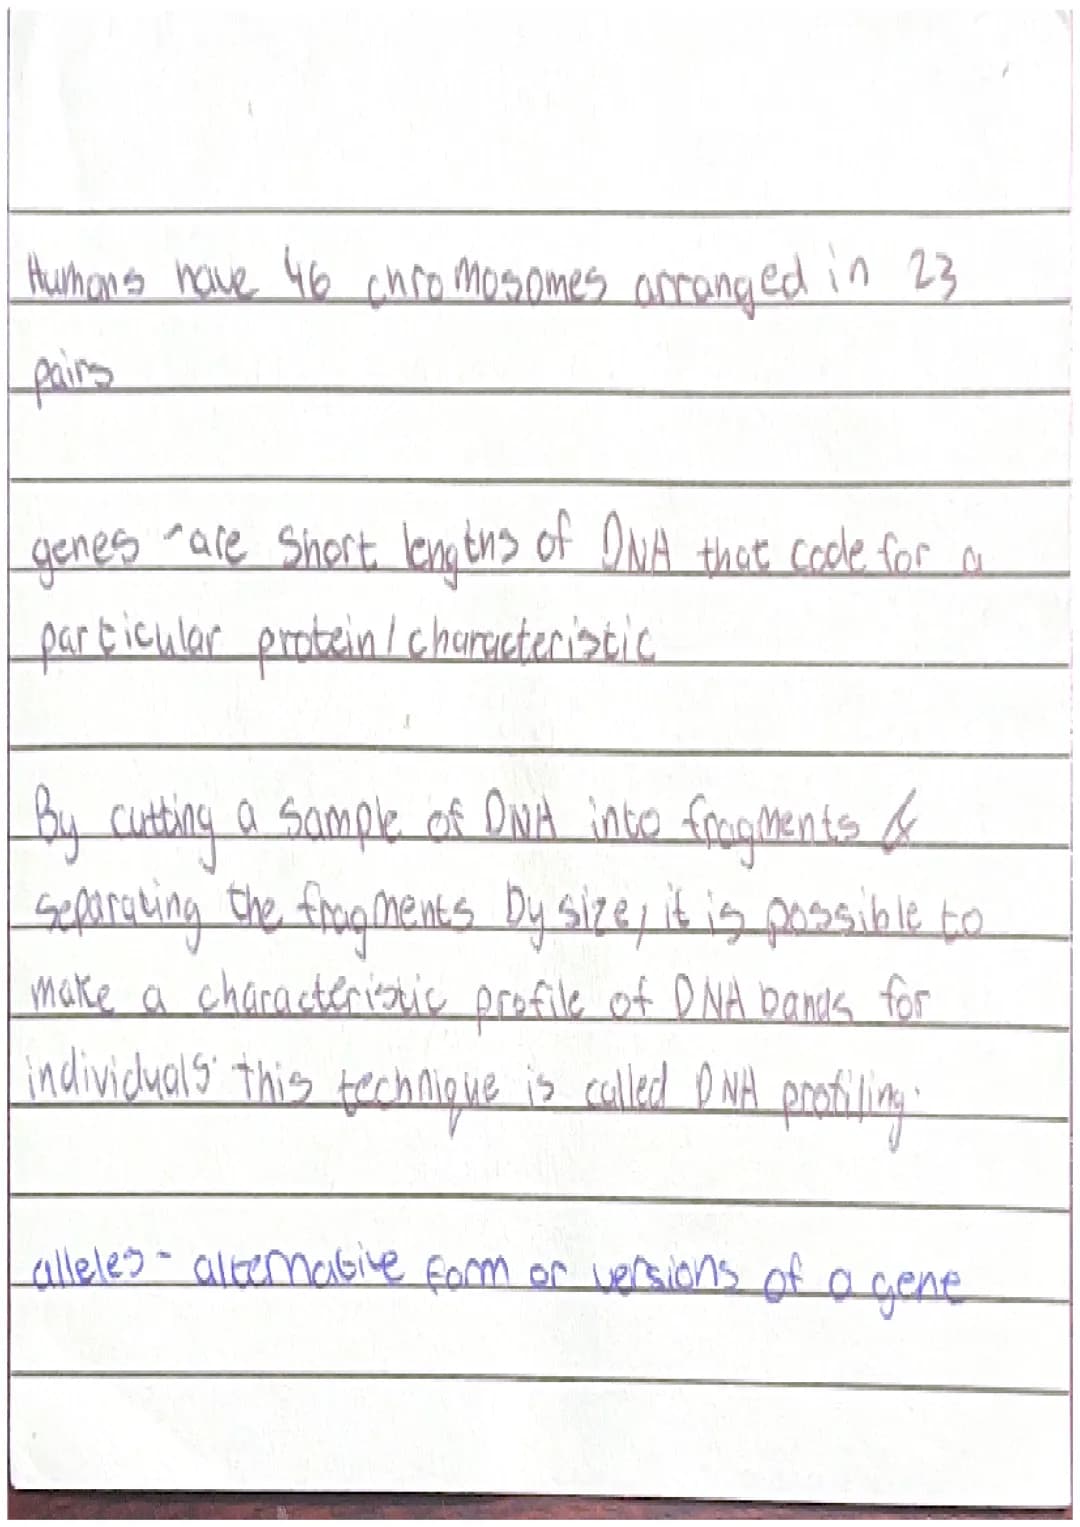 Humans have 46 chromosomes arranged in 23
pairs
genes - are short lengths of DNA that code for a
particular protein/characteristic
By cutting a sample of DNA into fragments &
separating the fragments by size, it is possible to
make a characteristic profile of DNA bands for
individuals. this technique is called DNA profiling.
alleles - alternative form or versions of a gene